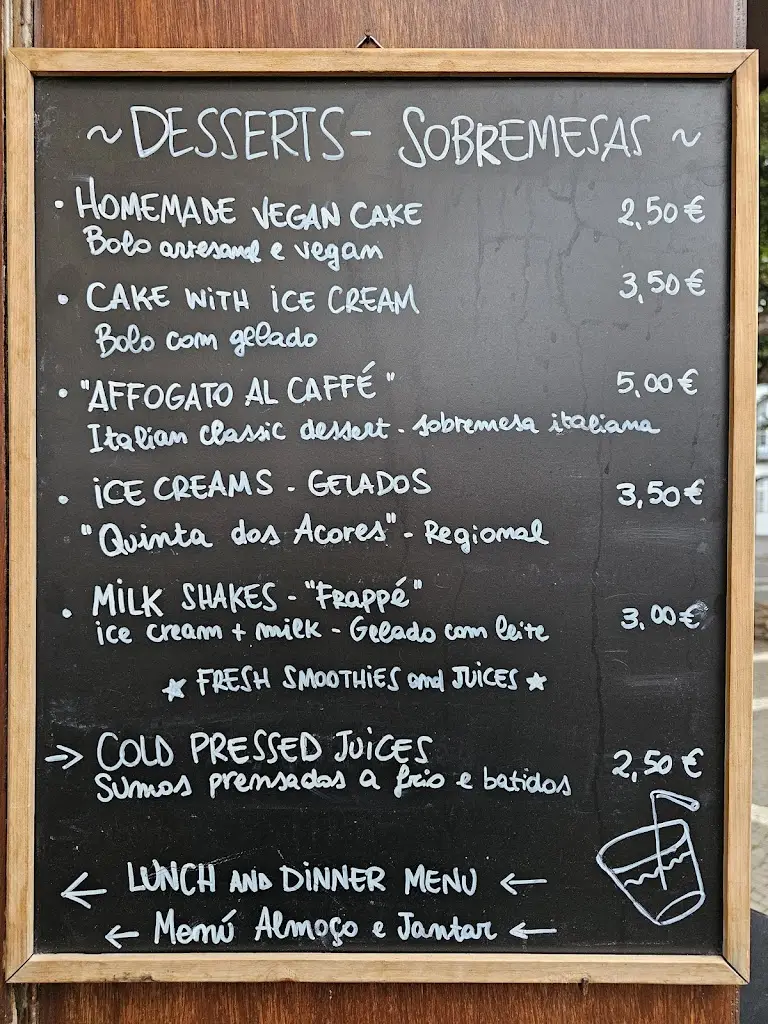 ~ DESSERTS - SOBREMESAS ~
• HOMEMADE VEGAN CAKE 2,50 €
Bolo artesanal e vegan
• CAKE WITH ICE CREAM 3,50 €
Bolo com gelado
• "AFFOGATO AL CAFFÉ" 5,00 €
Italian classic dessert - sobremesa italiana
• ICE CREAMS - GELADOS 3,50 €
"Quinta dos Acores" - Regional
• MILK SHAKES - "Frappé" 3,00 €
ice cream + milk - Gelado com leite
★ FRESH SMOOTHIES and JUICES ★
→ COLD PRESSED JUICES 2,50 €
Sumos prensados a frio e batidos
← LUNCH AND DINNER MENU ←
← Menú Almoço e Jantar ←